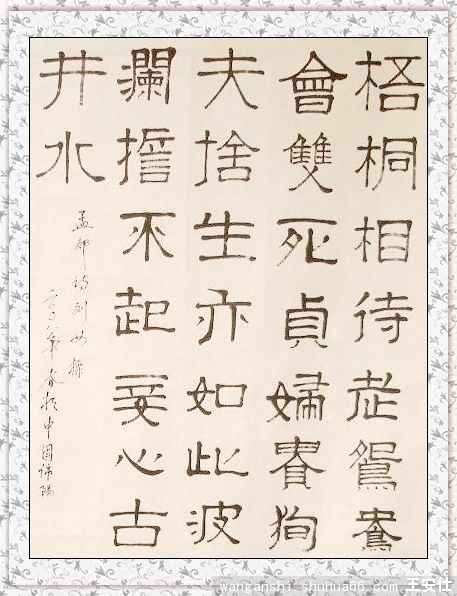 梧桐相待老鴛鴦
會雙死貞婦貴徇
夫捨生亦如此波
瀾誓不起妾心古
井水
孟郊诗列女操
春於中國
wanganshi.shuhua60.com 王安仕